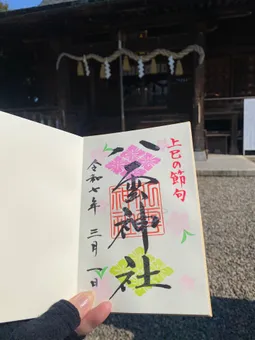 上巳の節句
八雲神社
令和七年 三月一日